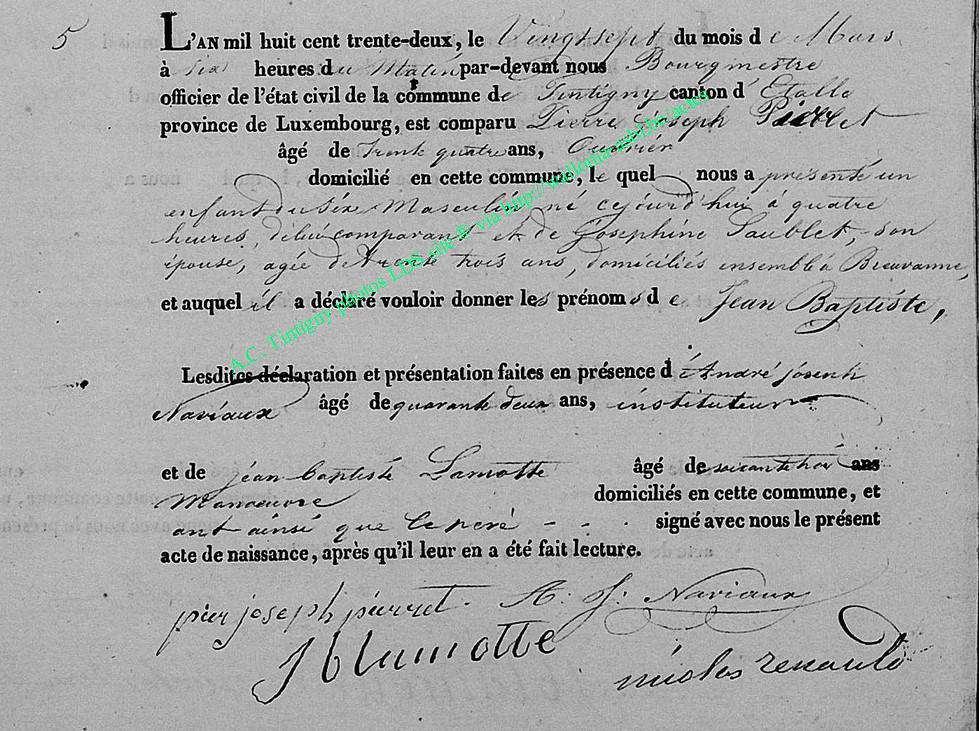 5
L'AN mil huit cent trente-deux, le Vingtsept du mois de Mars
à six heures du Matin par-devant nous Bourgmestre
officier de l'état civil de la commune de Tintigny canton d'Etalle
province de Luxembourg, est comparu Pierre Joseph
âgé de trente quatre ans, Ouvrier
domicilié en cette commune, le quel nous a présenté un
enfant du séxe Masculin, né cejourd'hui à quatre
heures, délui comparant et de Joséphine Saublet, son
épouse, agée de trente trois ans, domiciliés ensemble à Breuvanne,
et auquel il a déclaré vouloir donner les prénoms de Jean Baptiste,
Lesdites déclaration et présentation faites en présence d'André joseph
Naviaux âgé de quarante deux ans, instituteur
et de jean baptiste Lamotte âgé de soixante trois ans
Manoeuvre domiciliés en cette commune, et
ont ainsi que le pere - - - signé avec nous le présent
acte de naissance, après qu'il leur en a été fait lecture.
pier joseph pierret. A. J. Naviaux
J b lamotte
nicolas renauld
A.C. Tintigny photos LDS site & via http://